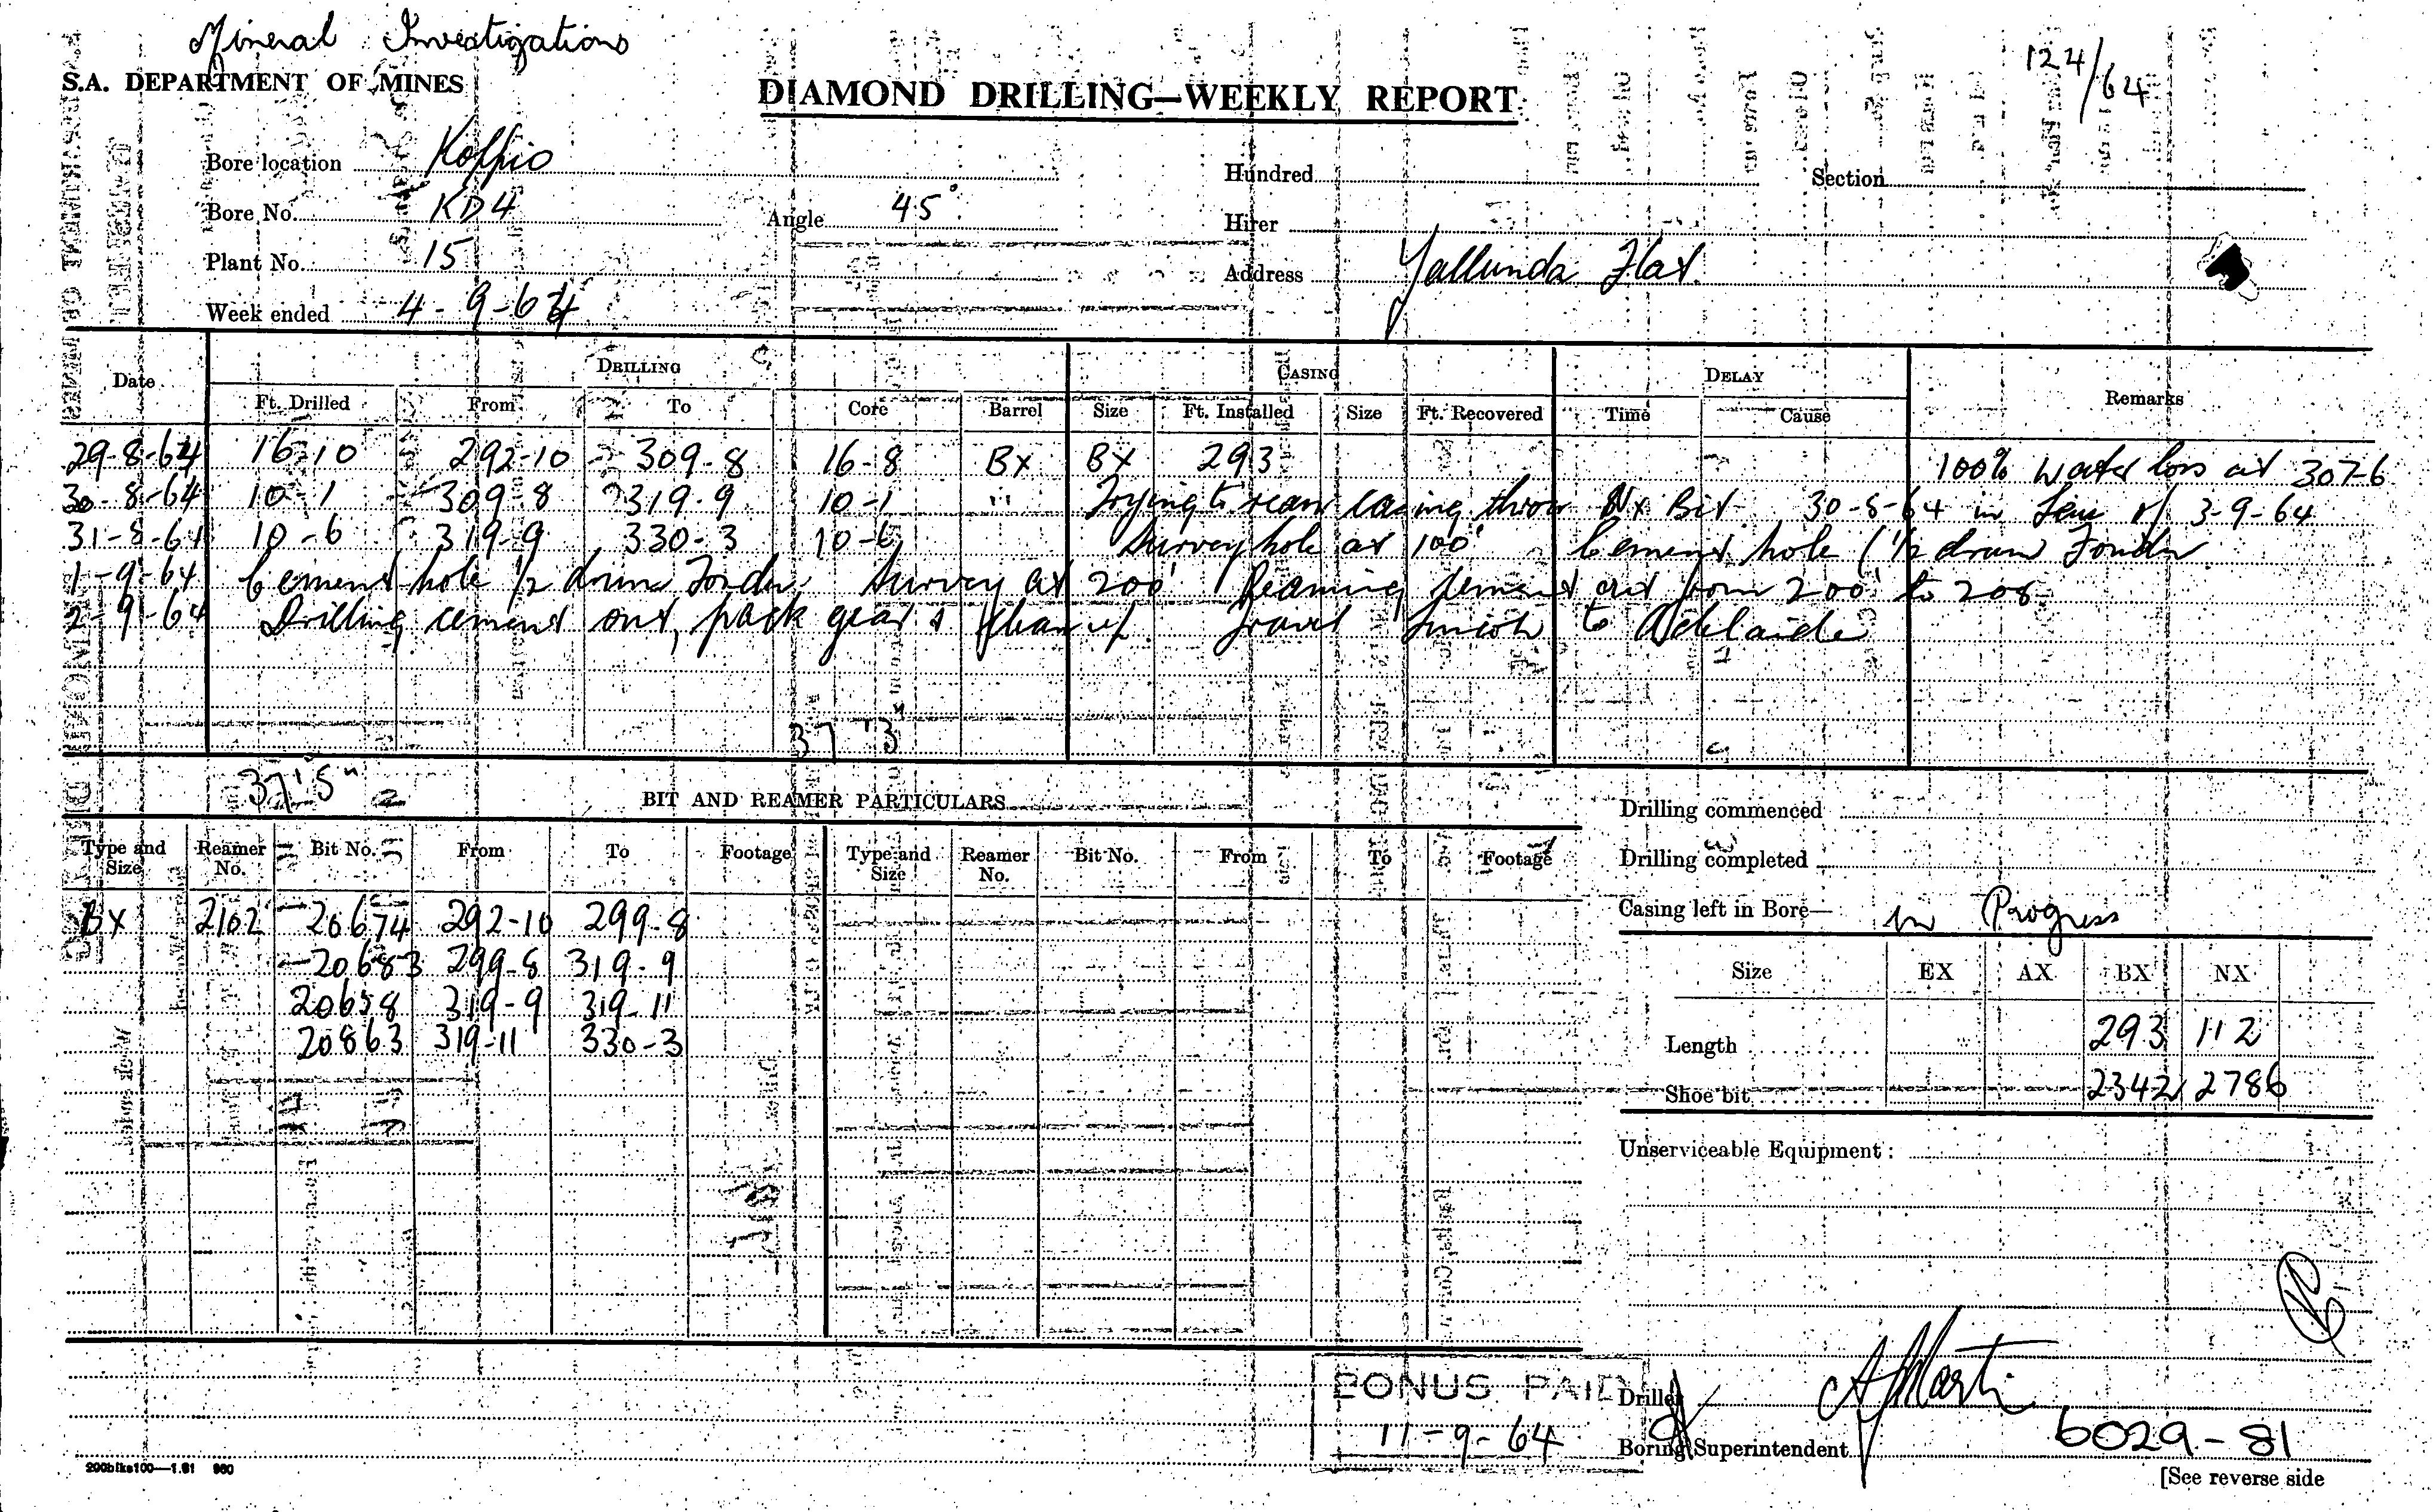 Mineral Investigations
S.A. DEPARTMENT OF MINES
DIAMOND DRILLING—WEEKLY REPORT
124/64
Bore location Koppio
Hundred
Section
Bore No. KD4
Angle 45°
Hirer
Plant No. 15
Address Yallunda Flat.
Week ended 4-9-64
Date
DRILLING
CASING
DELAY
Remarks
Ft. Drilled From To Core Barrel Size Ft. Installed Size Ft. Recovered Time Cause
29-8-64 16-10 292-10 309-8 16-8 BX BX 293 100% water loss at 307-6
30-8-64 10-1 309-8 319-9 10-1 " Trying to ream casing throu Nx Bit 30-8-64 in lieu of 3-9-64
31-8-64 10-6 319-9 330-3 10-6 Survey hole at 100' Cement hole (1/2 drum Fondu
1-9-64 Cement hole 1/2 drum Fondu. Survey at 200' Reaming cement out from 200' to 208.
2-9-64 Drilling cement out, pack gear & clean up. Travel to Adelaide
37'3"
37'5"
BIT AND REAMER PARTICULARS
Type and Size Reamer No. Bit No. From To Footage Type and Size Reamer No. Bit No. From To Footage
BX 2102 20674 292-10 299-8
20683 299-8 319-9
20658 319-9 319-11
20863 319-11 330-3
Drilling commenced
Drilling completed
Casing left in Bore— In Progress
Size EX AX BX NX
Length 293 112
Shoe bit 2342 2786
Unserviceable Equipment :
BONUS PAID
11-9-64
Driller
Boring Superintendent
6029-81
200bks100—1.61 960
[See reverse side